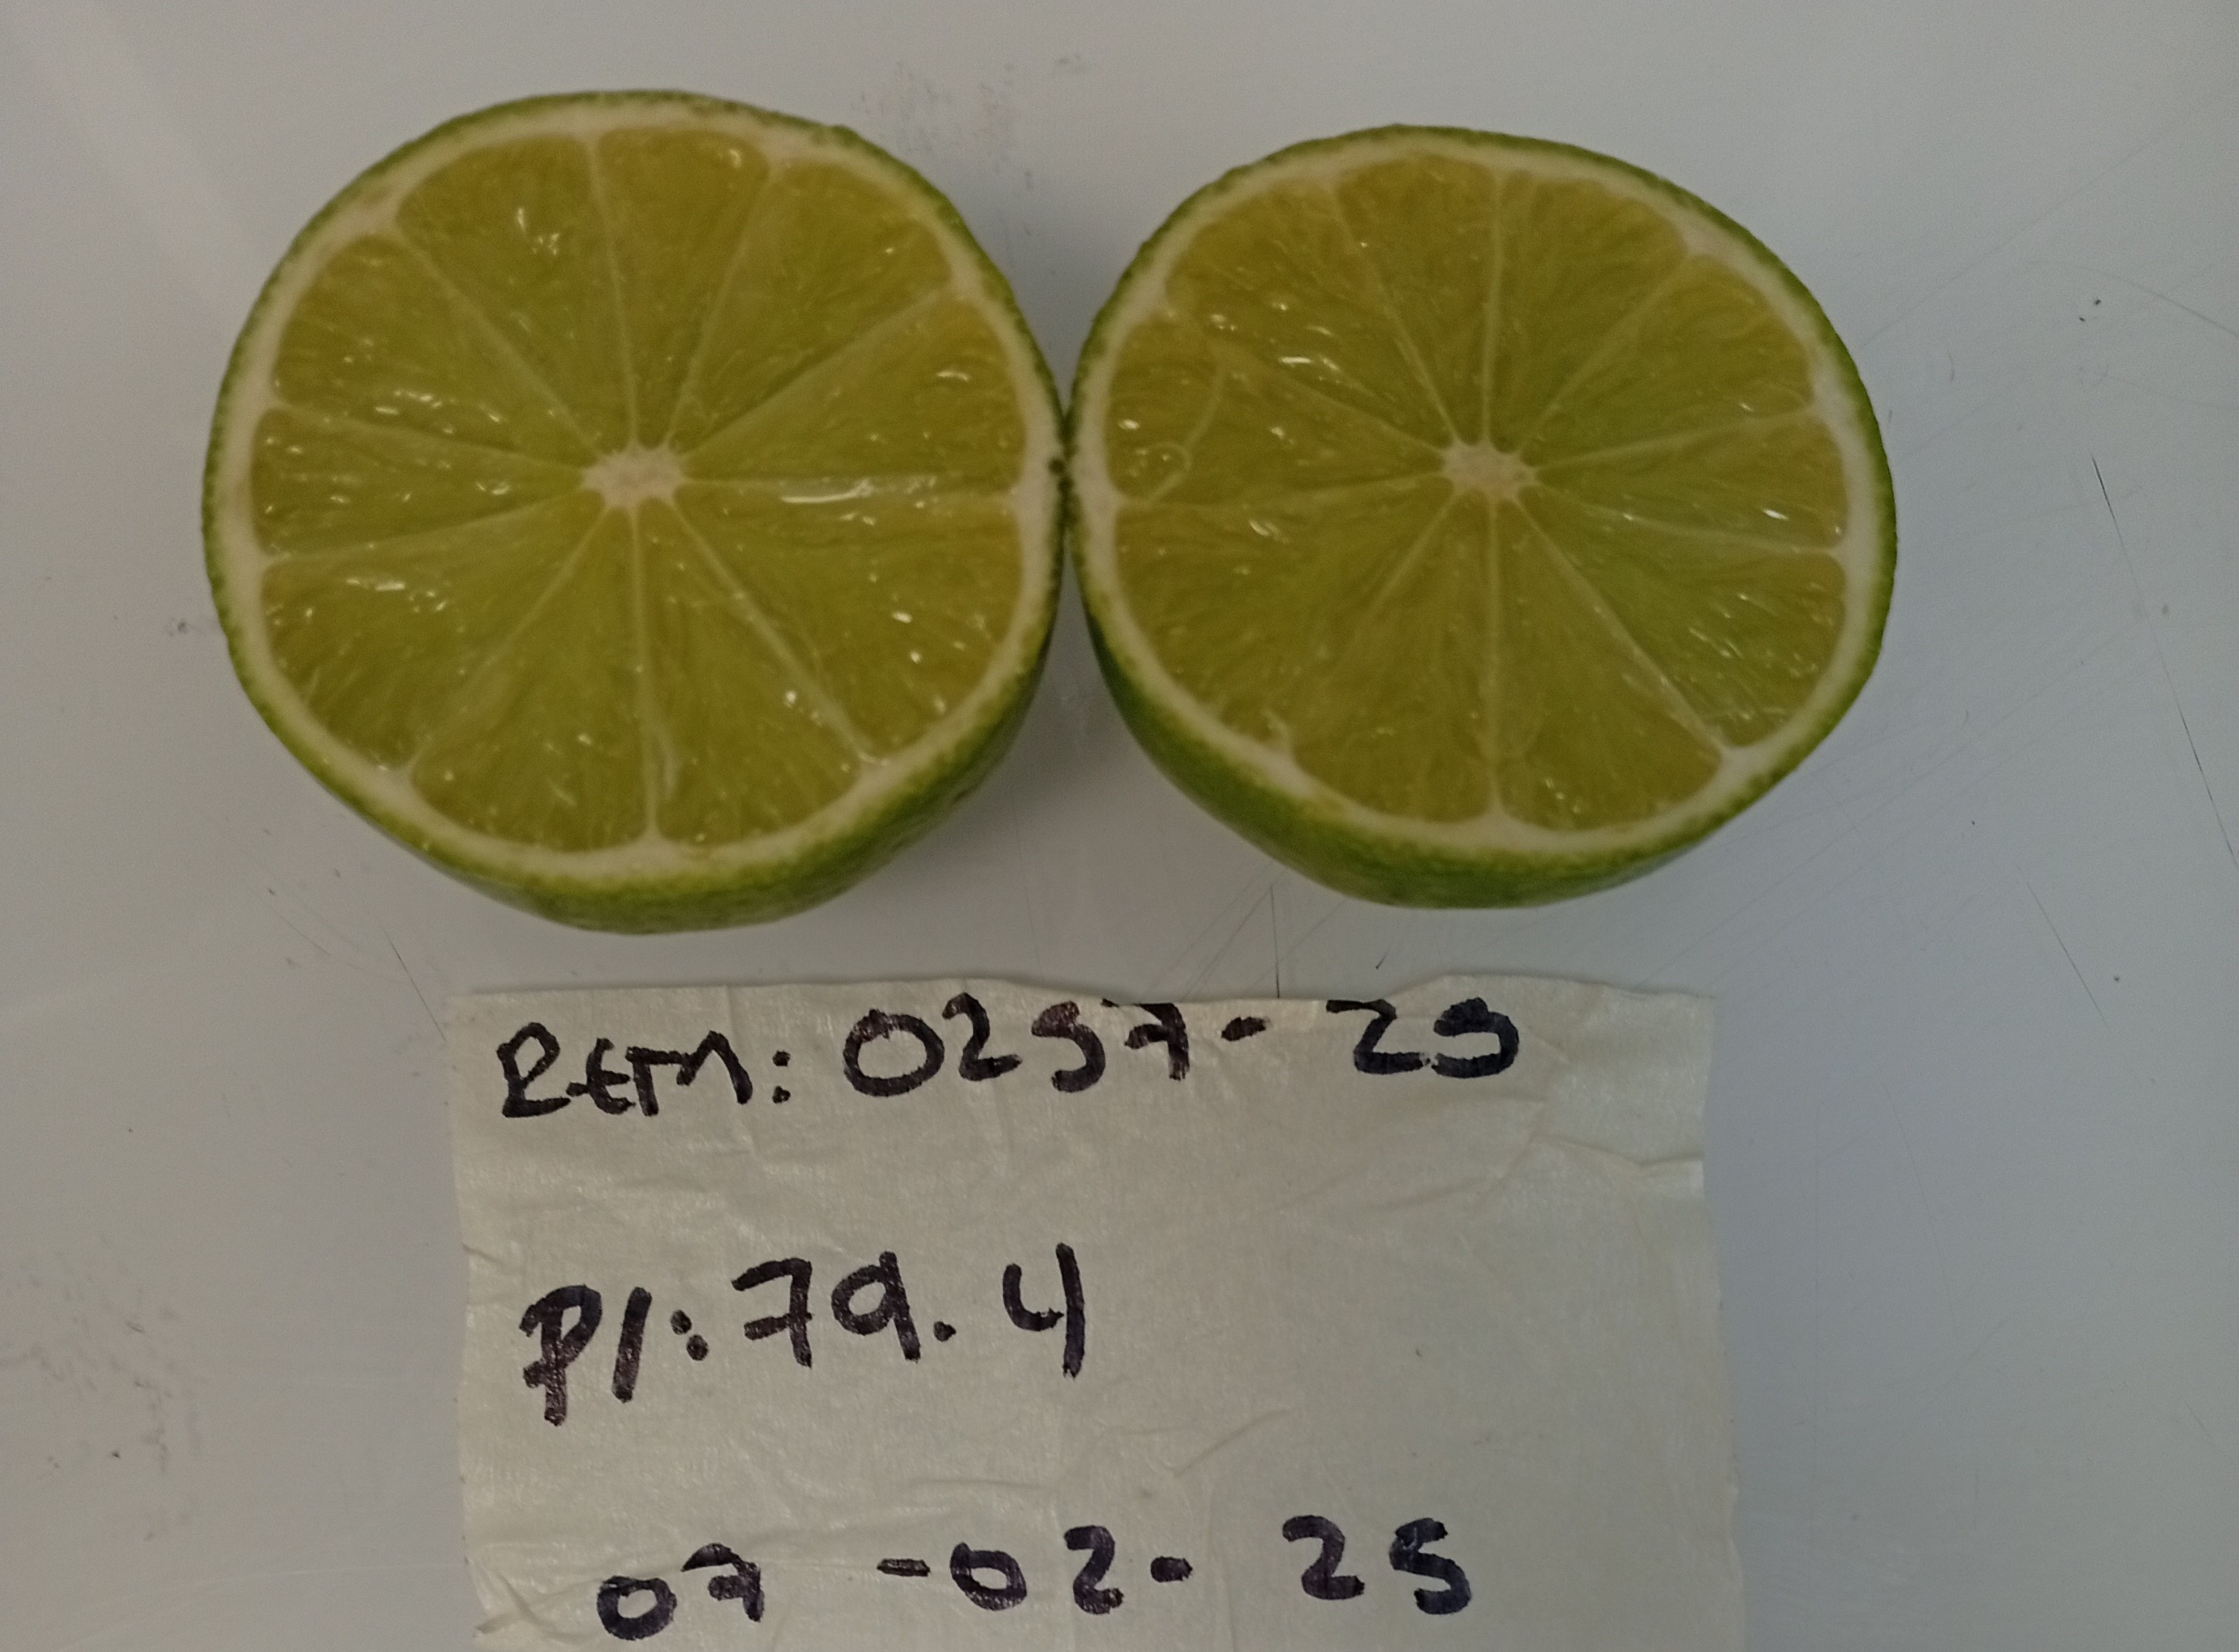 REM: 0257-25
P1: 79.4
07-02-25